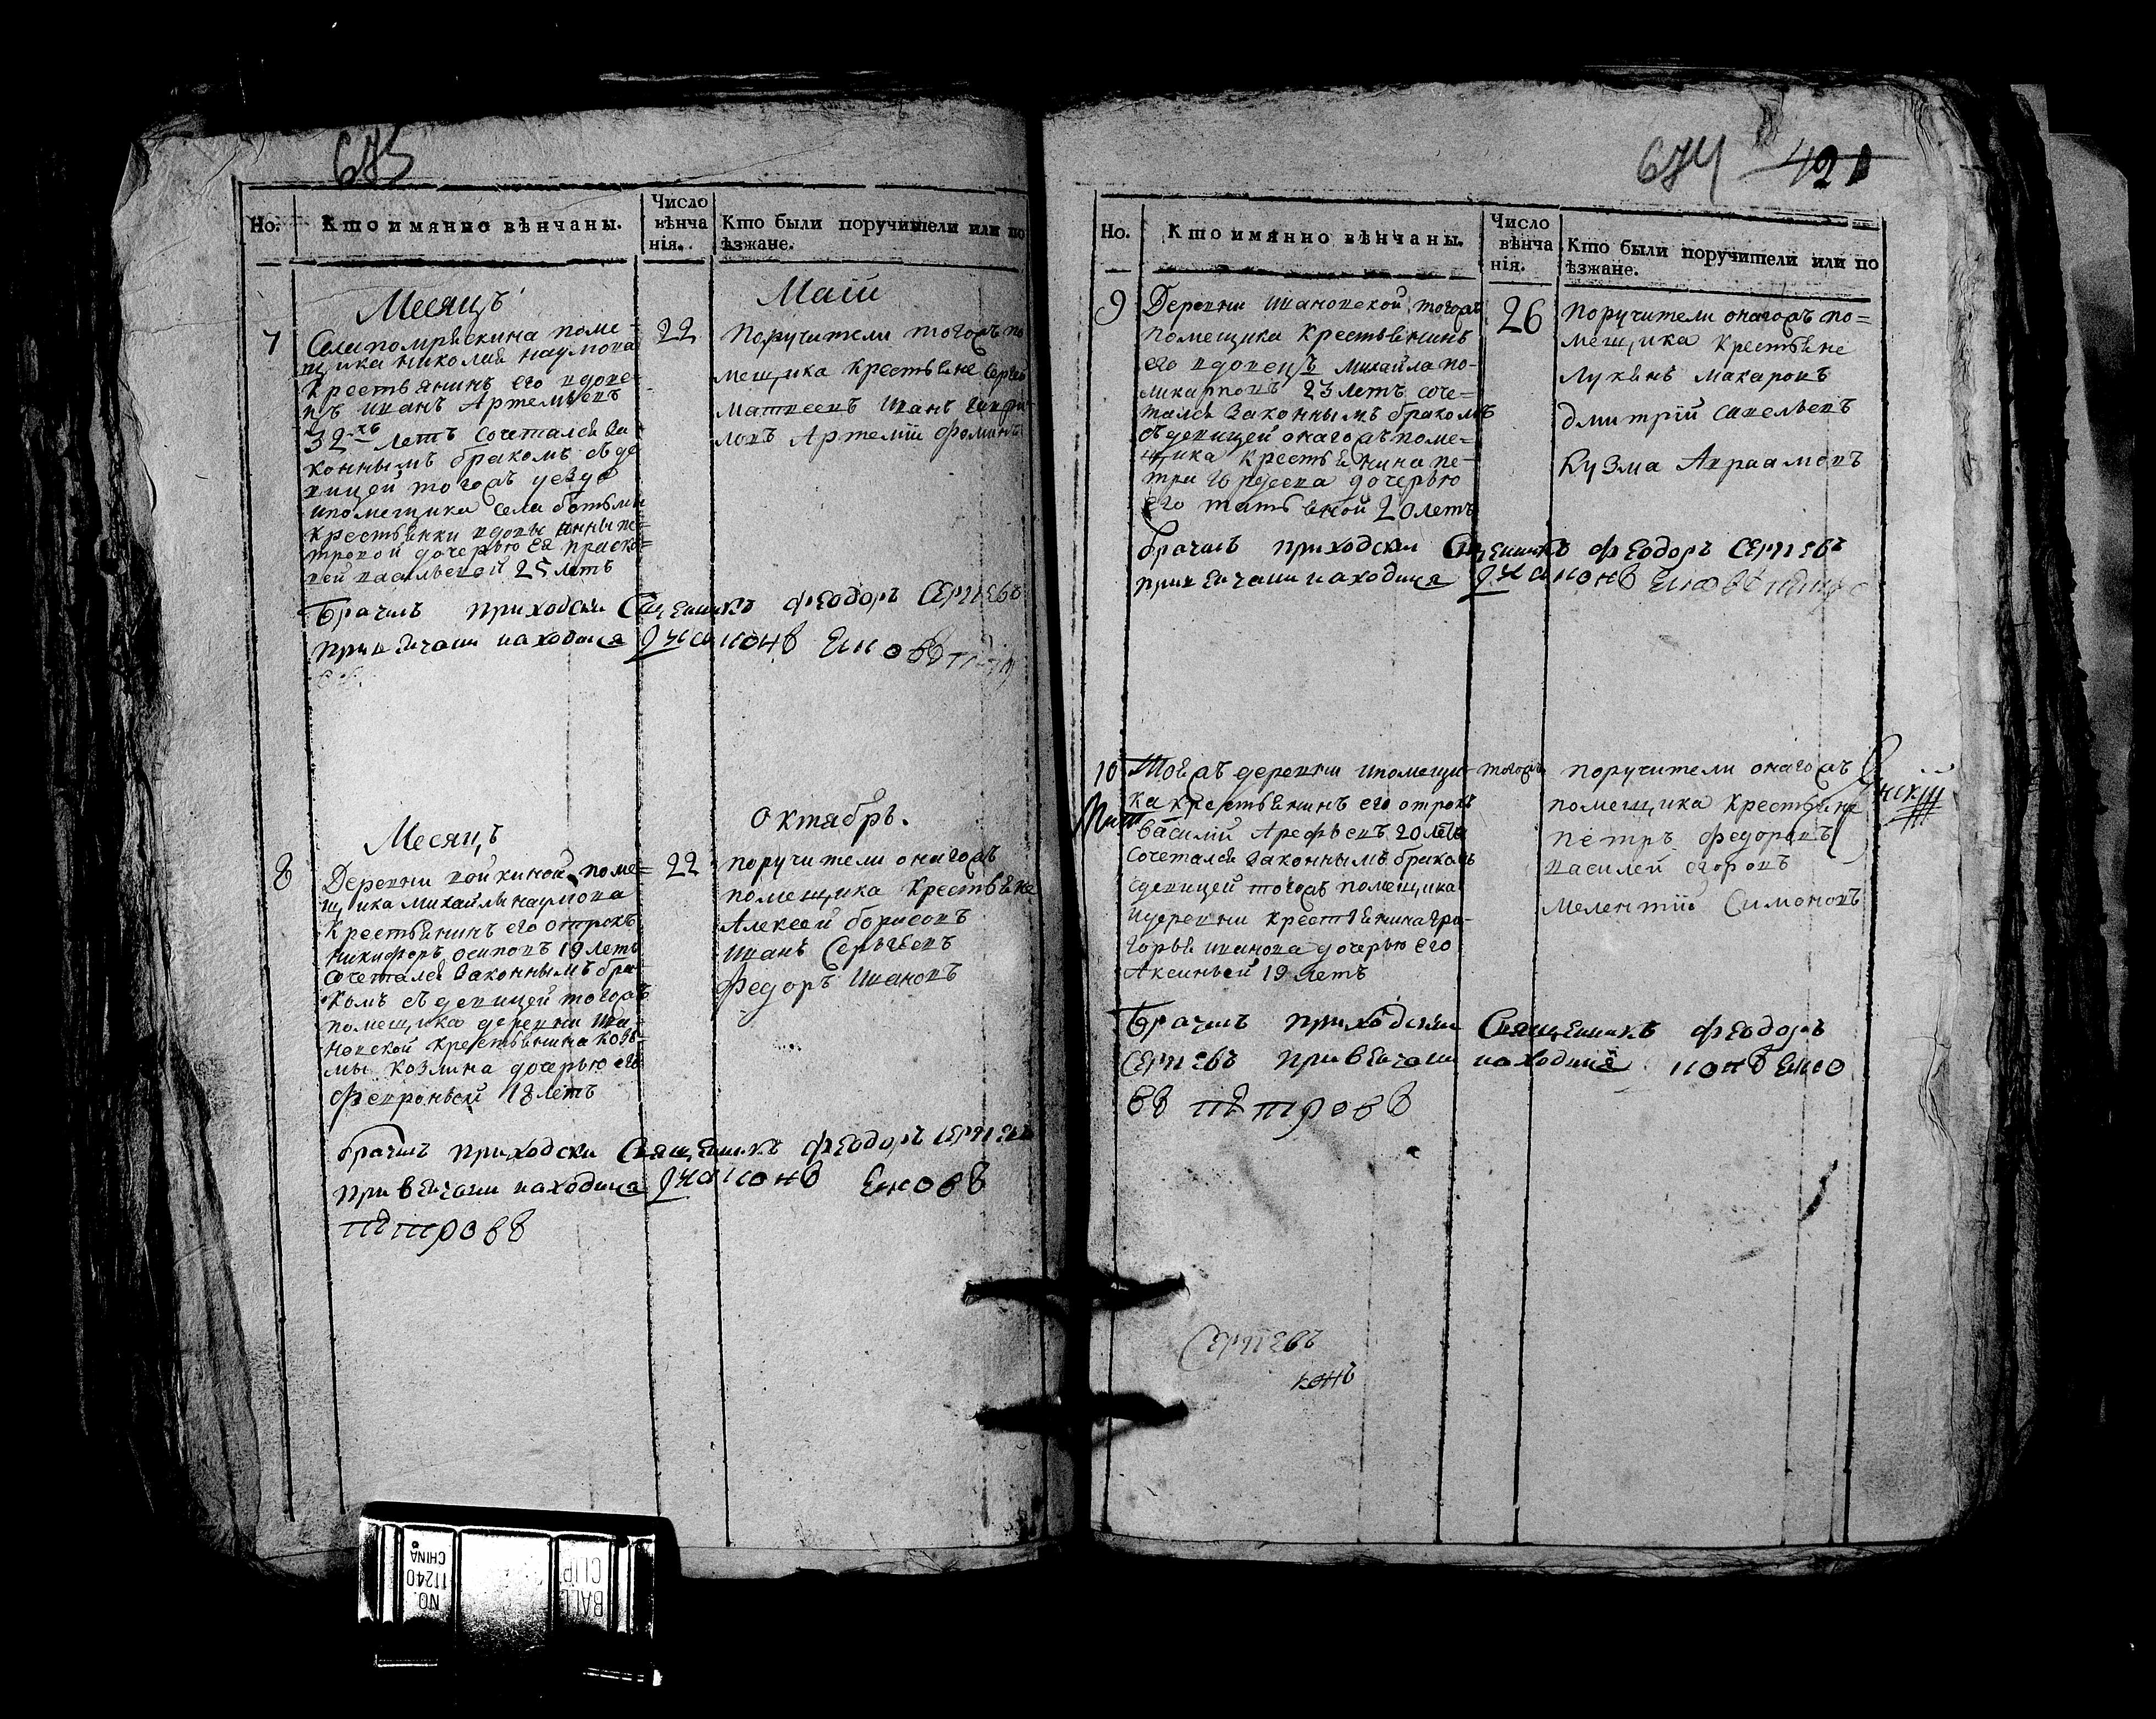 673
Но.
Кто имянно вѣнчаны.
Число
вѣнча
нія.
Кто были поручители или по
ѣзжане.
Месяцъ
Маіи
7
22
Села поме-
щика николая наумова
крестьянинъ его вдове-
цъ иванъ Артемьевъ
32хъ летъ сочетался за
коннымъ бракомъ съ де
вицей тогожъ уезда
ипомещика села
крестьянки вдовы анны пе-
тровой дочерью ея праско-
вей васильевой 25 летъ
Поручители тогожъ по
мещика крестьяне сергей
матвеевъ иванъ гаври-
ловъ Артемій фоминъ
Брачилъ приходски Священникъ феодоръ СЕРГЕВЪ
при венчани находился дияконъ
Месяцъ
октябрь.
8
22
Деревни войкиной поме=
щика михайлы наумова
крестьянинъ его отрокъ
никифоръ осиповъ 19 летъ
сочетался законнымъ бра-
комъ съ девицей тогожъ
помещика деревни ива-
новской крестьянина козь-
мы козлина дочерью его
Февроньей 18 летъ
поручители онагожъ
помещика крестьяне
Алексей борисовъ
иванъ Сергеевъ
Федоръ ивановъ
брачилъ приходски Священникъ феодоръ СЕРГЕВЪ
при венчани находился дияконъ
петровъ
674 421
Но.
Кто имянно вѣнчаны.
Число
вѣнча
нія.
Кто были поручители или по
ѣзжане.
9
26
Деревни ивановской тогожъ
помещика крестьянинъ
его вдовецъ михайла по-
ликарповъ 23 летъ соче=
тался законнымъ бракомъ
съ девицей онагожъ поме=
щика крестьянина пе-
тра дочерью
его татьяной 20 летъ
Поручители онагожъ по=
мещика крестьяне
лукьянъ макаровъ
дмитрій савельевъ
кузма Авраамовъ
брачилъ приходски Священникъ феодоръ СЕРГЕВЪ
при венчани находился дияконъ
10
тогожъ
Тоежъ деревни ипомещи-
ка крестьянинъ его отрокъ
василій Арефьевъ 20 летъ
сочетался законнымъ бракомъ
сдевицей тогожъ помещика
идеревни крестьянина гри-
горья иванова дочерью его
Аксиньей 19 летъ
поручители онагожъ
помещика крестьяне
петръ федоровъ
василей егоровъ
мелентій Симоновъ
Брачилъ приходски Священникъ феодоръ
СЕРГЕВЪ при венчани находился
въ петровъ
СЕРГЕВЪ
конъ
NO.
11240
CHINA